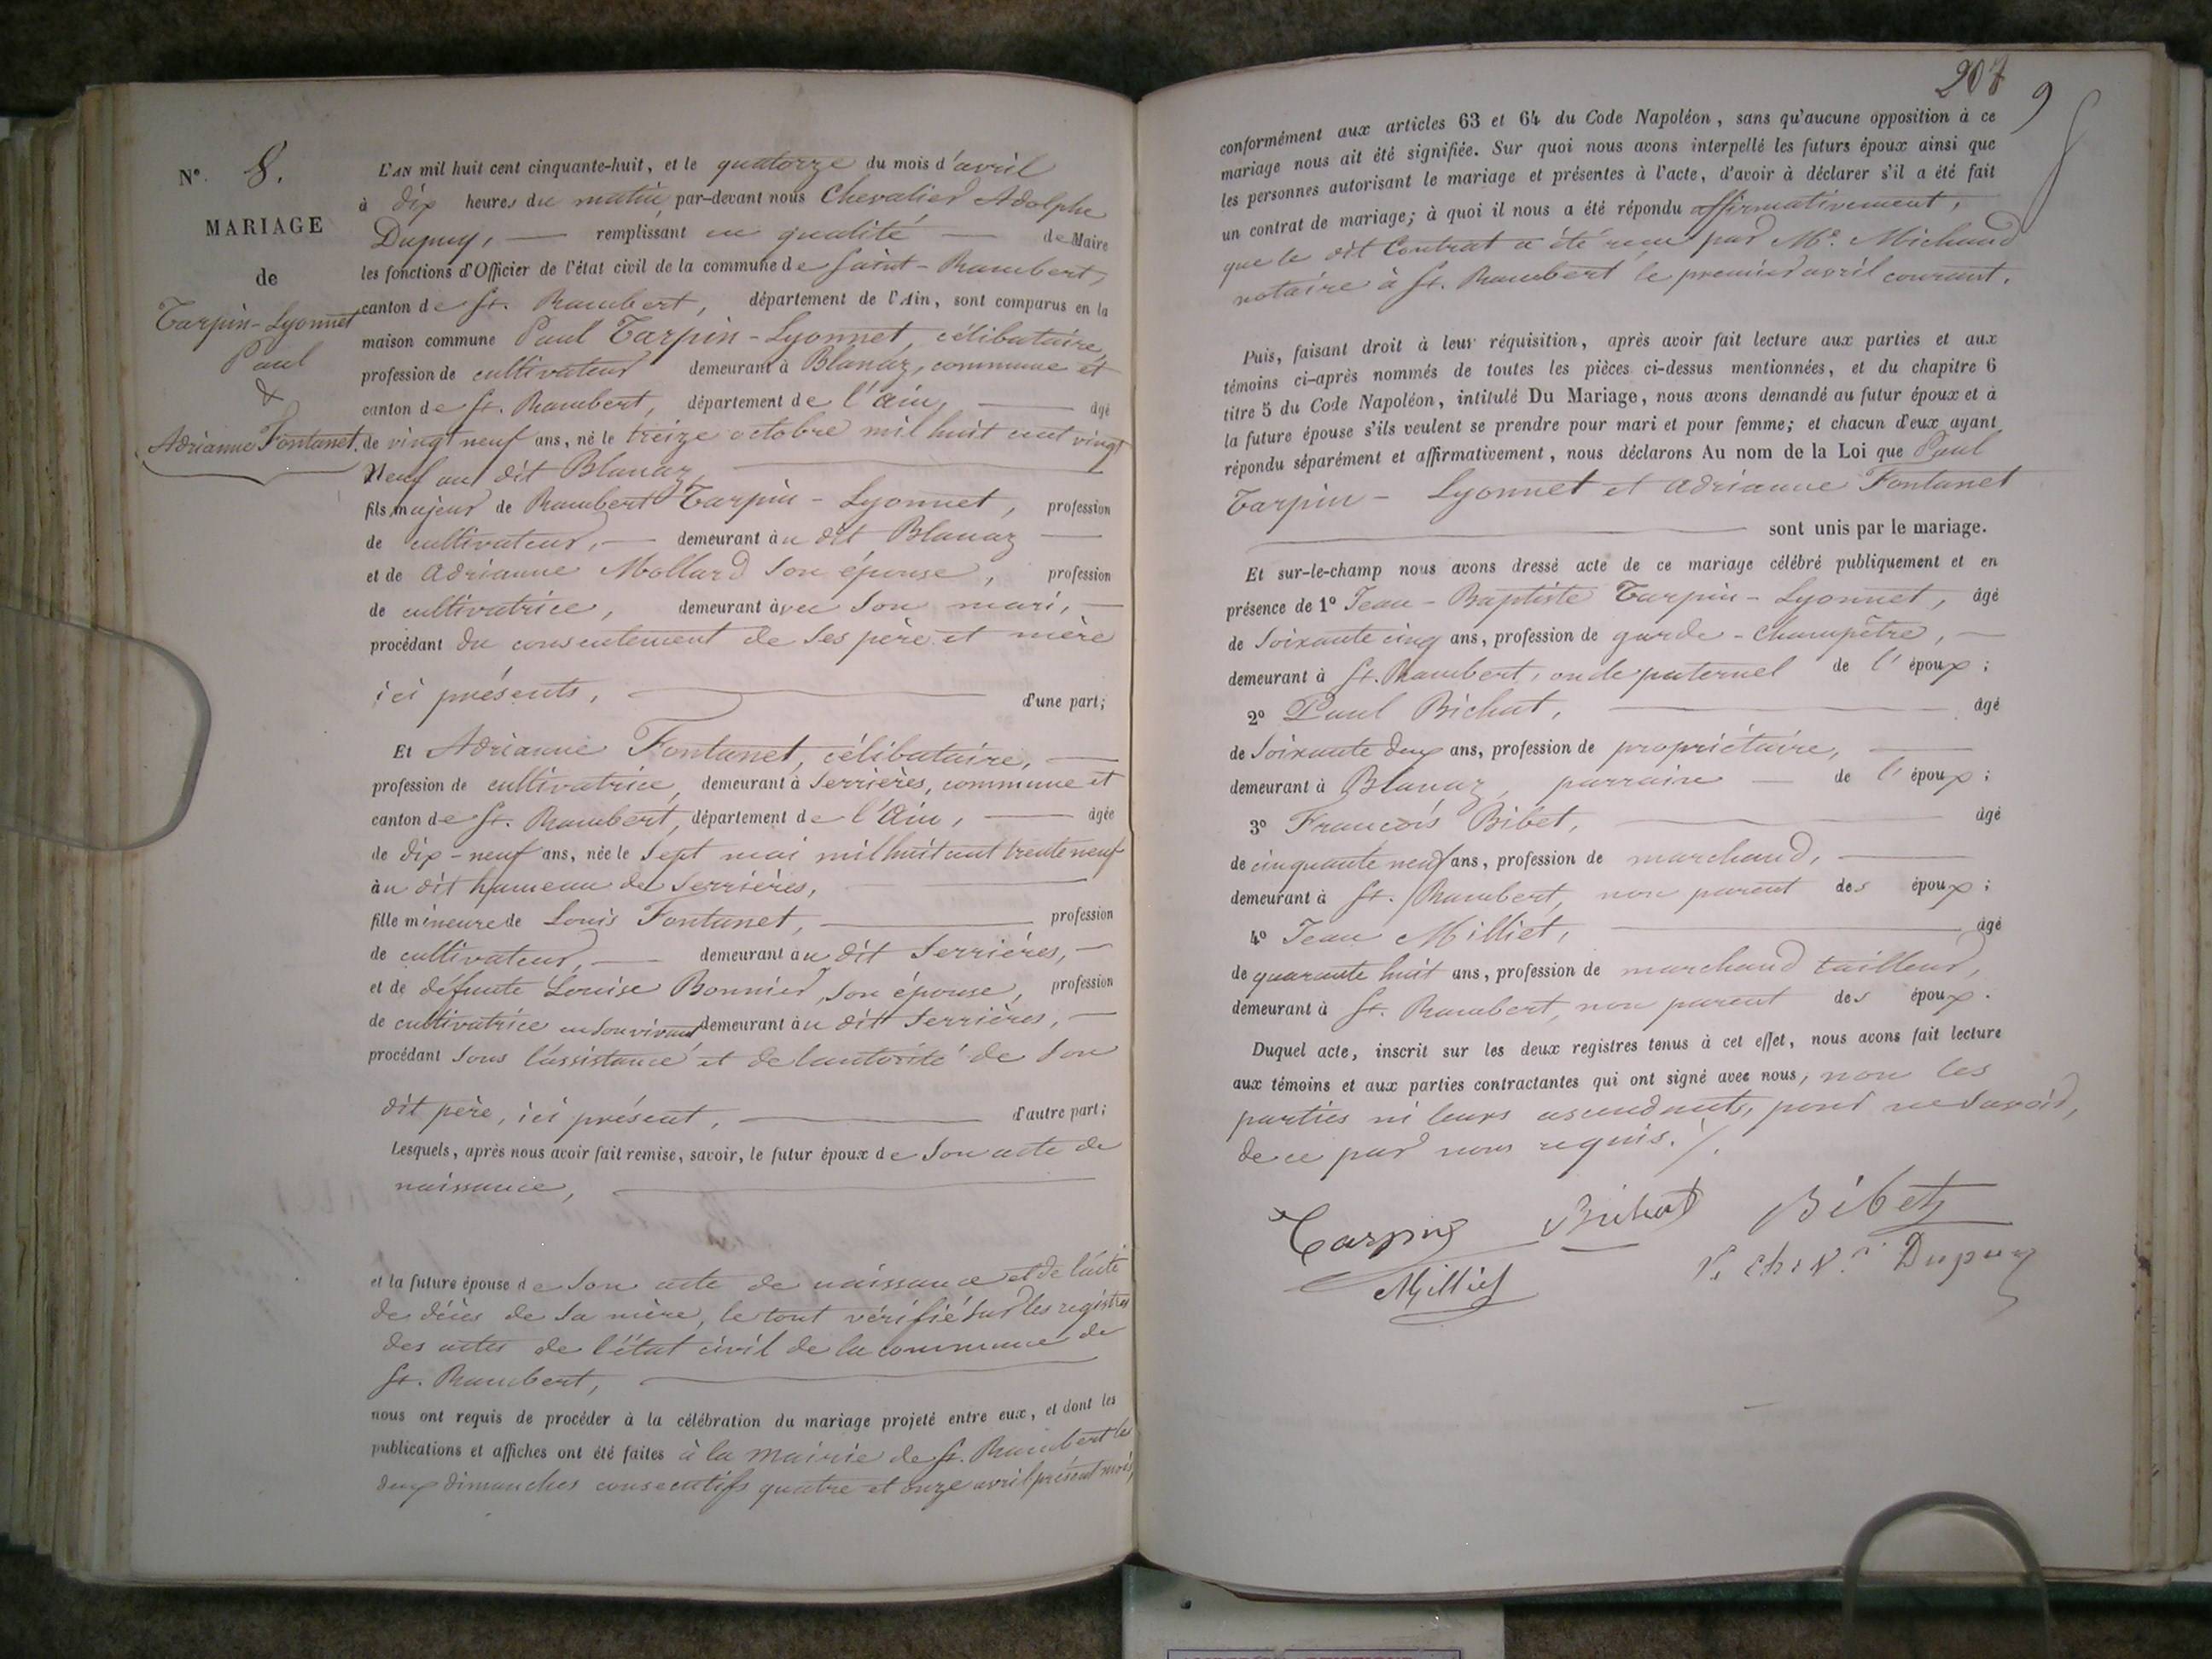 N°. 8.
MARIAGE
de
Tarpin-Lyonnet
Paul
&
Adrianne Fontanet.
L'AN mil huit cent cinquante-huit, et le quatorze du mois d'avril
à dix heures du matin, par-devant nous Chevalier Adolphe
Dupuy, — remplissant en qualité — de Maire
les fonctions d'Officier de l'état civil de la commune de Saint-Rambert,
canton de St. Rambert, département de l'Ain, sont comparus en la
maison commune Paul Tarpin-Lyonnet, célibataire,
profession de cultivateur demeurant à Blanaz, commune et
canton de St. Rambert, département de l'Ain, — âgé
de vingt neuf ans, né le treize octobre mil huit cent vingt
Neuf au dit Blanaz, —
fils majeur de Rambert Tarpin-Lyonnet, profession
de cultivateur, — demeurant àu dit Blanaz —
et de Adrianne Mollard son épouse, profession
de cultivatrice, demeurant àvec son mari, —
procédant du consentement de ses père et mère
ici présents, — d'une part;
Et Adrianne Fontanet, célibataire, —
profession de cultivatrice, demeurant à Serrières, commune et
canton de St. Rambert, département de l'Ain, — âgée
de dix-neuf ans, née le sept mai mil huit cent trente neuf
àu dit hameau de Serrières, —
fille mineure de Louis Fontanet, — profession
de cultivateur, — demeurant àu dit Serrières, —
et de défunte Louise Bonnier, son épouse, profession
de cultivatrice en son vivant demeurant àu dit Serrières, —
procédant sous l'assistance et de l'autorité de son
dit père, ici présent, — d'autre part;
Lesquels, après nous avoir fait remise, savoir, le futur époux de son acte de
naissance, —
et la future épouse de son acte de naissance et de l'acte
de décès de sa mère, le tout vérifié sur les registres
des actes de l'état civil de la commune de
St. Rambert, —
nous ont requis de procéder à la célébration du mariage projeté entre eux, et dont les
publications et affiches ont été faites à la Mairie de St. Rambert les
deux dimanches consecutifs quatre et onze avril présent mois,
207
9
conformément aux articles 63 et 64 du Code Napoléon, sans qu'aucune opposition à ce
mariage nous ait été signifiée. Sur quoi nous avons interpellé les futurs époux ainsi que
les personnes autorisant le mariage et présentes à l'acte, d'avoir à déclarer s'il a été fait
un contrat de mariage; à quoi il nous a été répondu affirmativement,
que le dit Contrat a été reçu par Me. Michaud
notaire à St. Rambert le premier avril courant.
Puis, faisant droit à leur réquisition, après avoir fait lecture aux parties et aux
témoins ci-après nommés de toutes les pièces ci-dessus mentionnées, et du chapitre 6
titre 5 du Code Napoléon, intitulé Du Mariage, nous avons demandé au futur époux et à
la future épouse s'ils veulent se prendre pour mari et pour femme; et chacun d'eux ayant
répondu séparément et affirmativement, nous déclarons Au nom de la Loi que Paul
Tarpin-Lyonnet et Adrianne Fontanet
— sont unis par le mariage.
Et sur-le-champ nous avons dressé acte de ce mariage célébré publiquement et en
présence de 1° Jean-Baptiste Tarpin-Lyonnet, âgé
de soixante cinq ans, profession de garde-champêtre, —
demeurant à St. Rambert, oncle paternel de l'époux;
2° Paul Bichat, — âgé
de soixante deux ans, profession de propriétaire, —
demeurant à Blanaz, parrain — de l'époux;
3° François Bibet, — âgé
de cinquante neuf ans, profession de marchand, —
demeurant à St. Rambert, non parent des époux;
4° Jean Milliet, — âgé
de quarante huit ans, profession de marchand tailleur,
demeurant à St. Rambert, non parent des époux.
Duquel acte, inscrit sur les deux registres tenus à cet effet, nous avons fait lecture
aux témoins et aux parties contractantes qui ont signé avec nous, non les
parties ni leurs ascendants, pour ne savoir,
de ce par nous requis. /.
Tarpin Bichat Bibet
Milliet Chevr. Dupuy